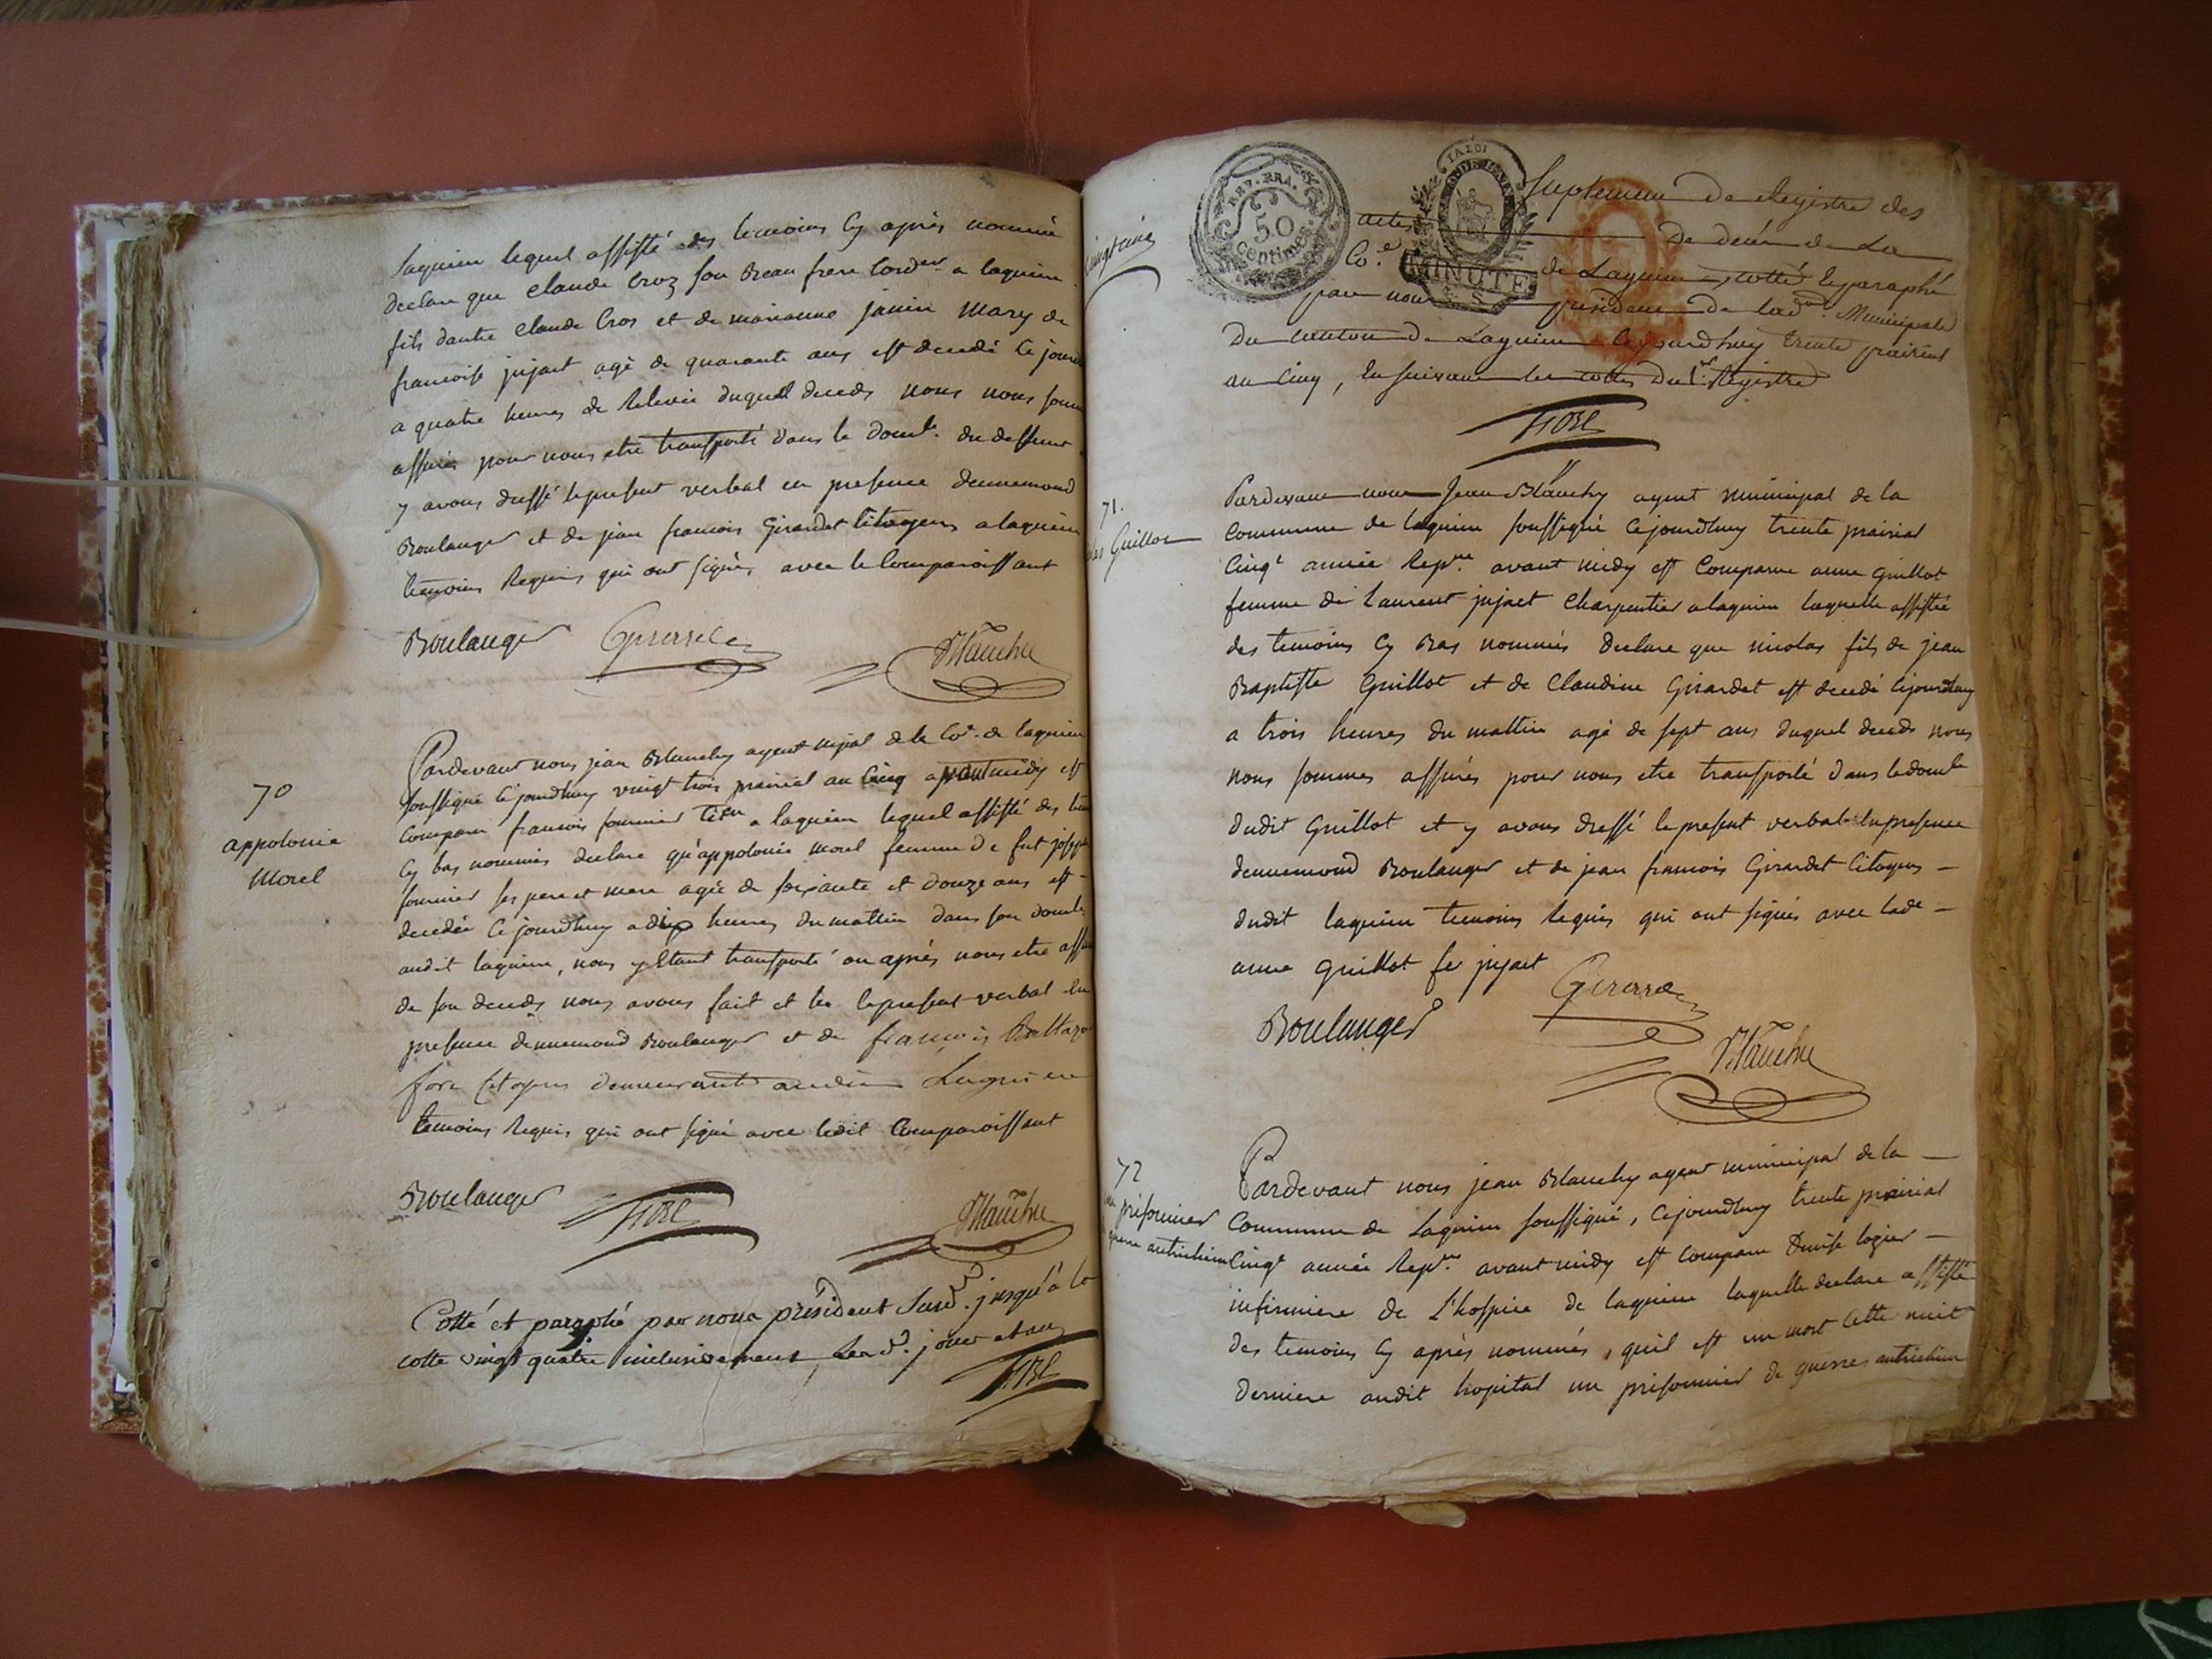 Laguieu lequel assisté des temoins cy après nommé
declare que claude Croz son Beau frere Corder a laguieu
fils dautre Claude Cros et de marianne janin mary de
francoise jujat agé de quarante ans est decedé ce jourd
a quatre heures de Relevée duquel deceds nous nous somm
assurés pour nous etre transporté dans le domle. du deffunt
y avons dressé le present verbal en presence dennemond
Boulanger et de jean francois Girardet Citoyens a laguieu
temoins Requis qui ont signés avec le Comparoissant
Boulanger
Blanchy
70
appolonie
Morel
Pardevant nous jean Blanchy agent mpal de la Coe. de laguieu
soussigné Cejourdhuy vingt trois prairial an Cinq avant midy est
Comparu francois fournier a laguieu lequel assisté des tem
Cy bas nommés declare qu'appolonie morel femme de fut joseph
fournier ses pere et mere agée de soixante et douze ans est
decedée Cejourdhuy a dix heures du mattin dans son domle
audit laguieu, nous y Etant transporté ou après nous etre assu
de son deceds nous avons fait et le present verbal En
presence dennemond Boulanger et de françois Baltazar
fore Citoyens demeurants audit Laguieu
temoins Requis qui ont signé avec ledit Comparoissant
Boulanger
fore
Blanchy
Cotté et paraphé par nous président Susd. jusqu'à la
cotte vingt quatre inclusivement, Lesd. jour et an
fore
vingt cinq
REP. FRA.
50
Centimes
LA LOI
MINUTE
Suplement de Registre des
actes de decés de La
Co.e de Laguieu cotté et paraphé
par nous président de lad.on Municipale
du canton de Laguieu Cejourdhuy trente prairial
an Cinq, En suivant les cottes du 1er. Registre
fore
71.
las Guillot
Pardevant nous Jean Blanchy agent municipal de la
Commune de laguieu soussigné Cejourdhuy trente prairial
Cinqe année Repne. avant midy est Comparue anne Guillot
femme de Laurent jujaet Charpentier a laguieu laquelle assistée
des temoins Cy Bas nommés declare que nicolas fils de jean
Baptiste Guillot et de Claudine Girardet est decedé Cejourdhuy
a trois heures du mattin agé de sept ans duquel deceds nous
nous sommes assurés pour nous etre transporté dans le domle
dudit Guillot et y avons dressé le present verbal En presence
dennemond Boulanger et de jean francois Girardet Citoyens
dudit laguieu temoins Requis qui ont signés avec lade
anne Guillot fe jujaet
Boulanger
Blanchy
72
un prisonnier
guerre autrichien
Pardevant nous jean Blanchy agent municipal de la
Commune de Laguieu soussigné, Cejourdhuy trente prairial
Cinqe année Repne. avant midy est Comparue Denise logier
infirmiere de L'hospice de laguieu laquelle declare assistée
des temoins Cy après nommés, quil est un mort Cette nuit
derniere audit hopital un prisonnier de guerres autrichien